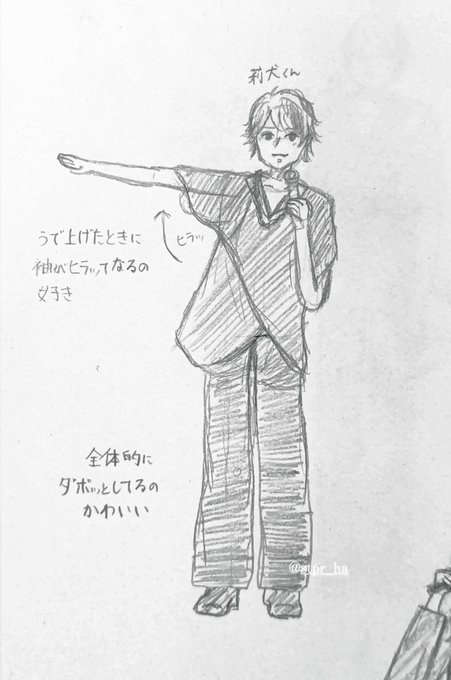 莉犬くん
うで上げたときに
袖がヒラッてなるの
好き
ヒラッ
全体的に
ダボッとしてるの
かわいい
@stpr_ha